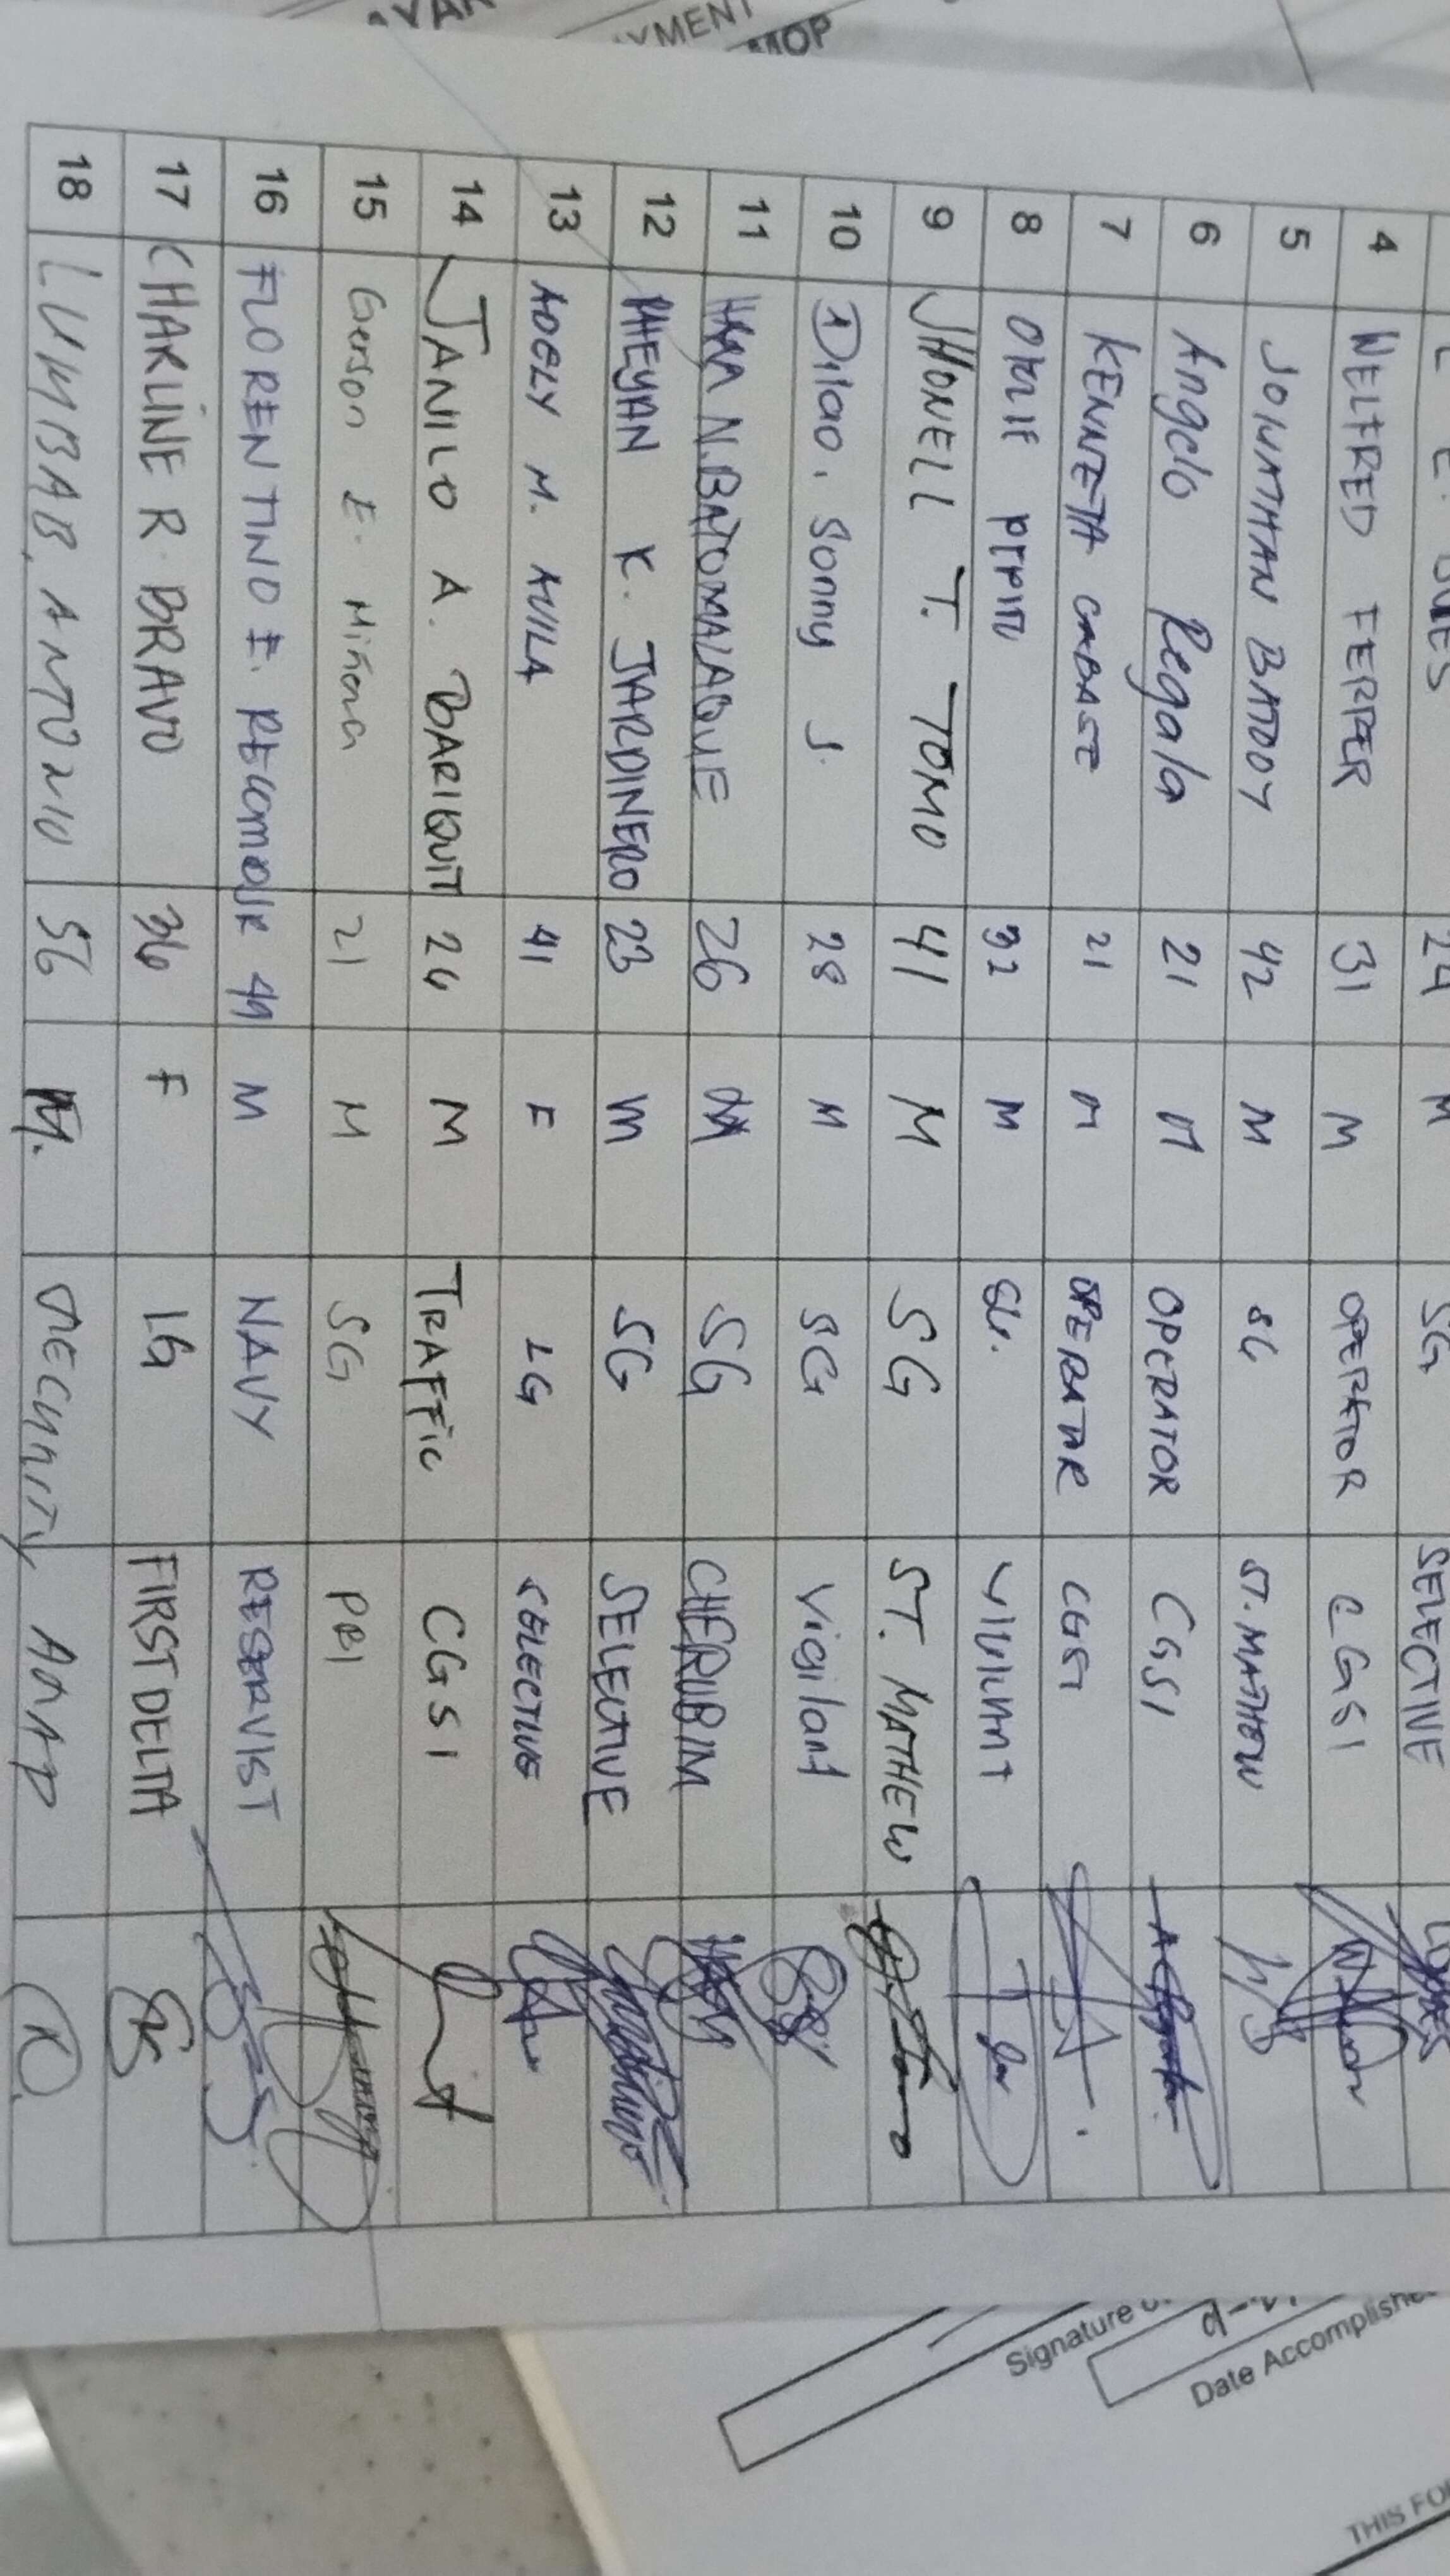 24 M SG SELECTIVE
4 WELFRED FERRER 31 M OPERATOR CGSI
5 JONATHAN BATOOY 42 M SG ST. MATHEW
6 Angelo Regala 21 M OPERATOR CGSI
7 KENNETH CABASE 21 M OPERATOR CGSI
8 32 M SG.
9 JHONELL T. TOMO 41 M SG ST. MATHEW
10 Dilao, Sonny J. 28 M SG Vigilant
11 N. BATOMALAQUE 26 M SG CHERUBIM
12 RHEYAN K. JARDINERO 23 M SG SELECTIVE
13 ADELY M. AVILA 41 F LG SELECTIVE
14 JANILO A. BARIQUIT 24 M TRAFFIC CGSI
15 Gerson E. Miñena 21 M SG PBI
16 FLORENTINO E. M NAVY RESERVIST
17 CHARLINE R. BRAVO 36 F LG FIRST DELTA
18 LUMBAB, ANTONIO 56 M. SECURITY
YMENT
MOP
Signature
Date Accomplishe
THIS FO